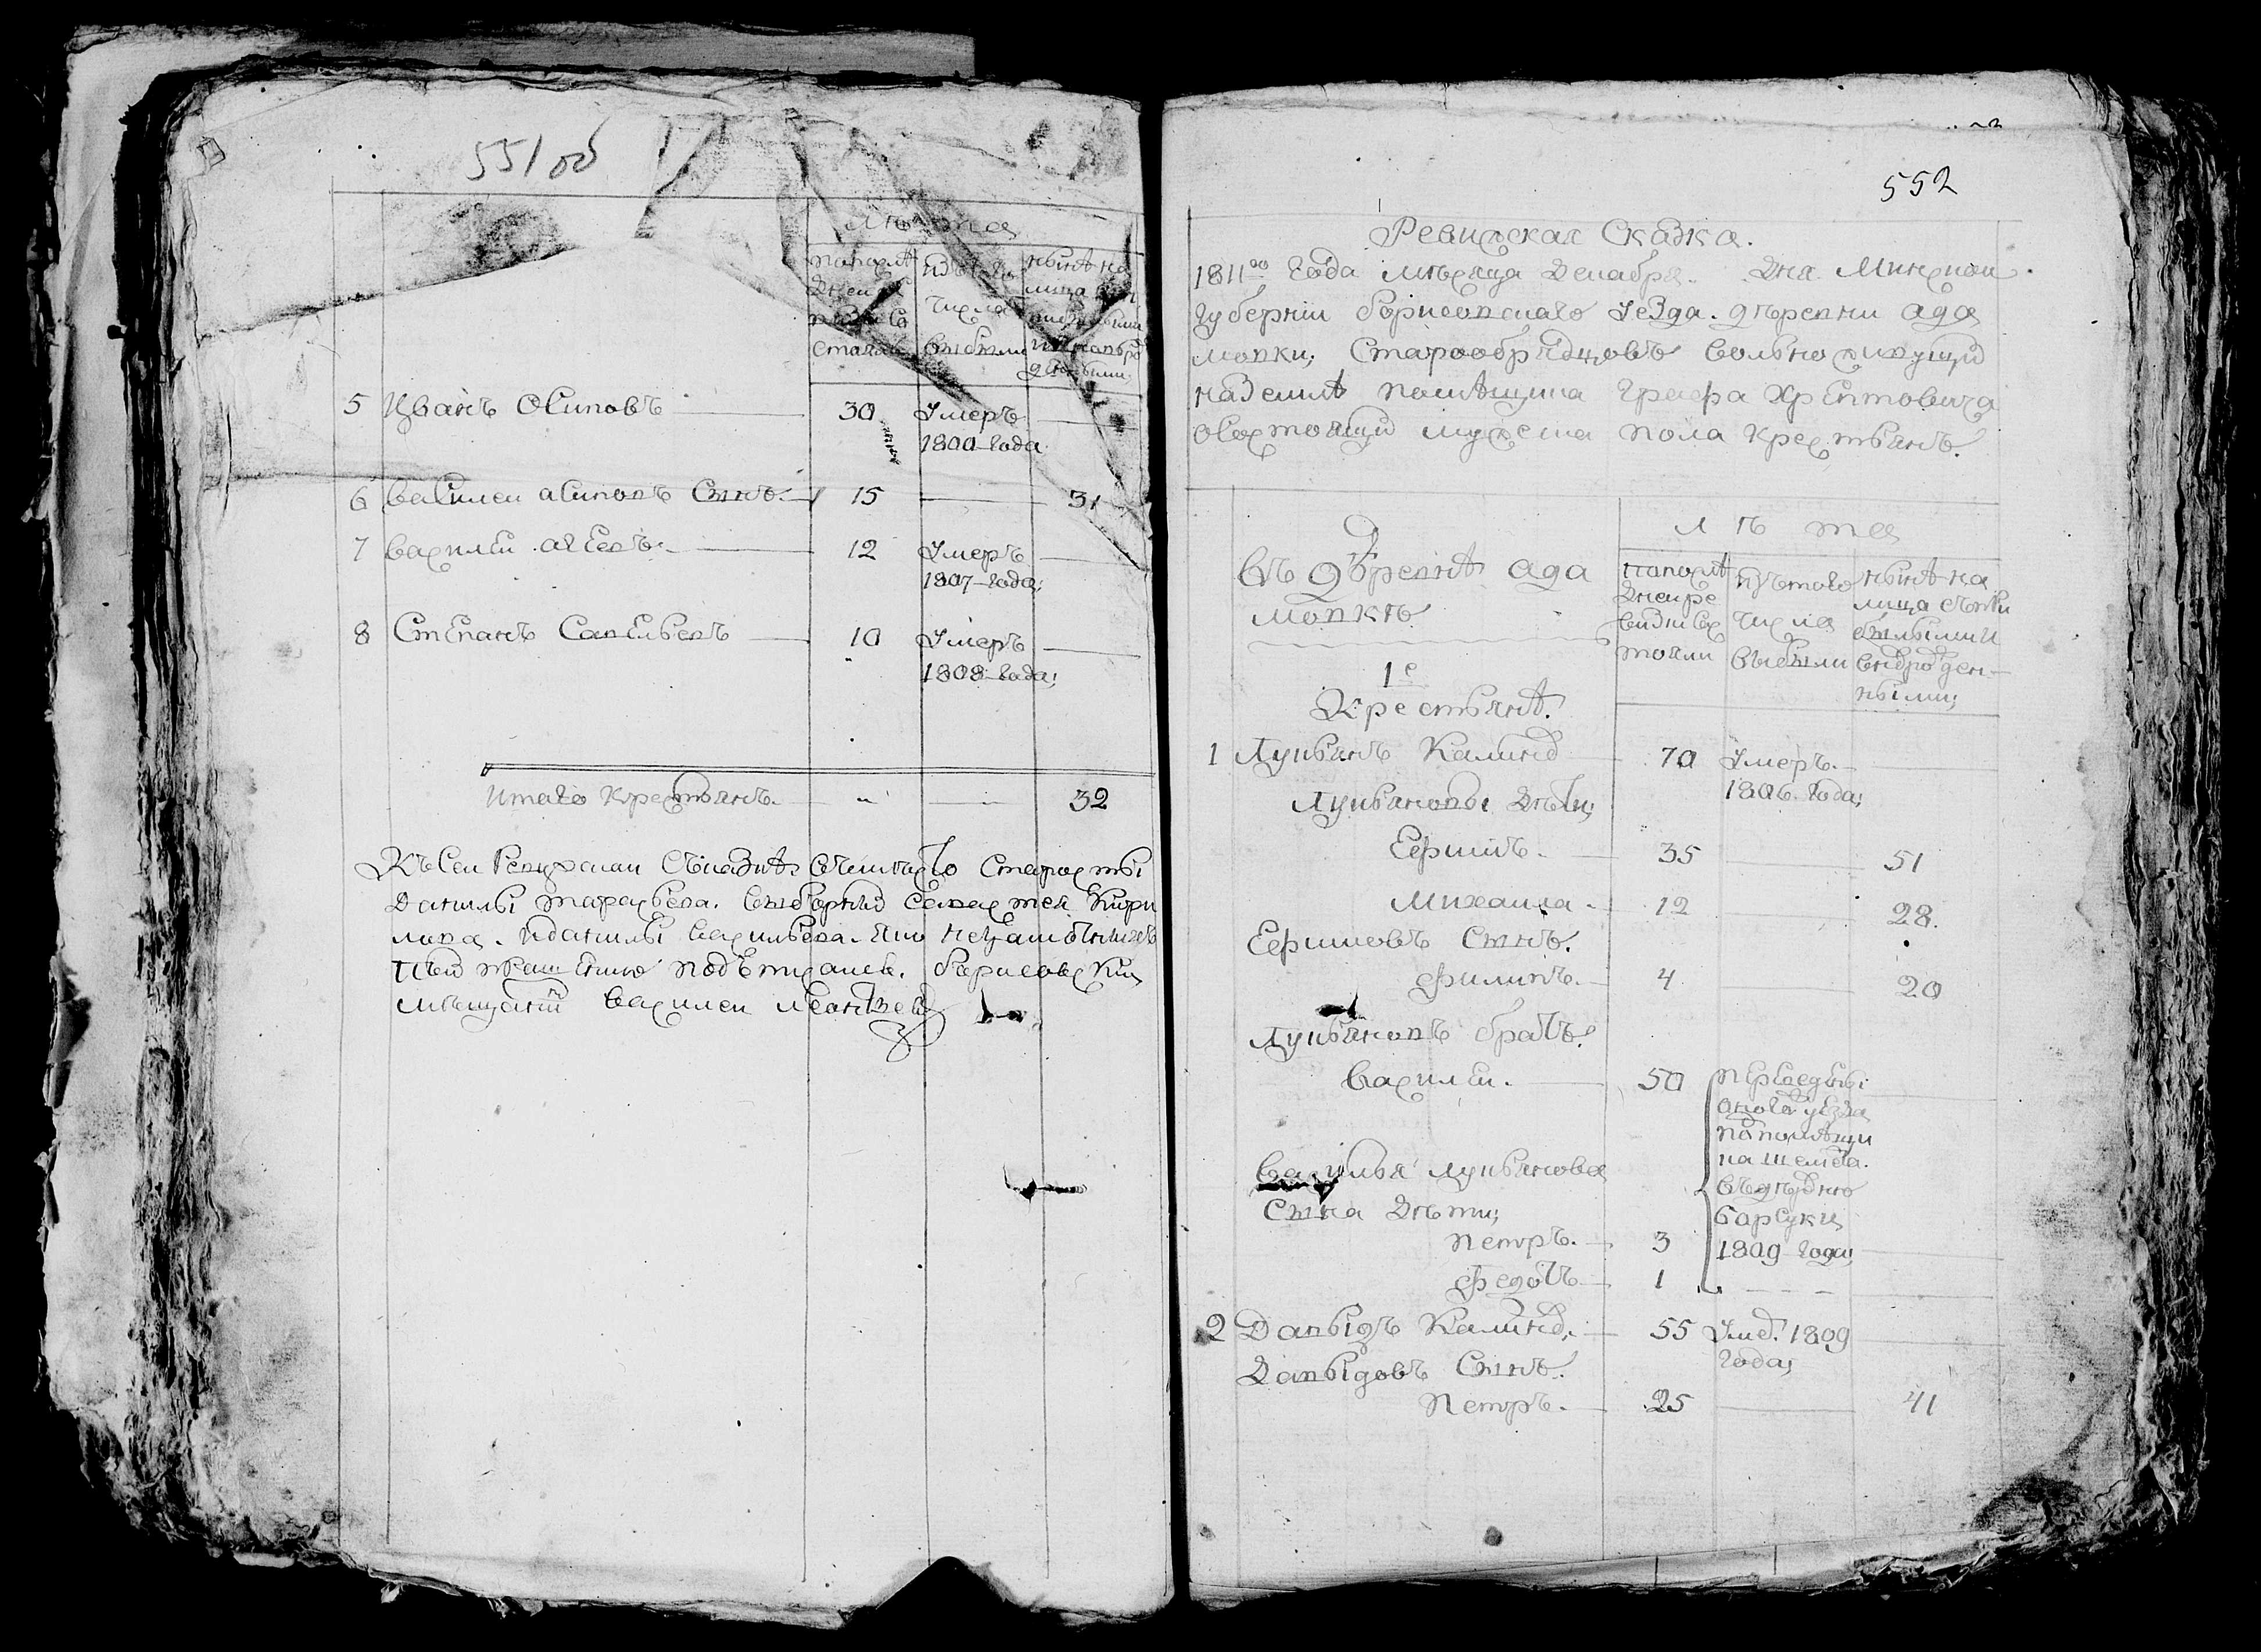 551 об
лѣта
попослѣ
дней ре
визіи со
стояло
изъ того
числа
выбыли
нынѣ на
лицо
5 Иванъ Осиповъ 30 Умеръ
1800 года
6 василеи асиповъ Сынъ 15 31
7 василеи авъ 12 Умеръ
1807 года;
8 Степанъ Савельевъ 10 Умеръ
1808 года;
Итого крестьянъ 32
Къ сеи Ревизскои Сказкѣ вместо Старосты
Данилы тарасьева. выборных Севастея Кири
лова. и данилы васильева. яко неграмотныхъ
по их прошению подписался. борисовскии
мѣщанин василеи леонтьев
552
Ревизская Сказка.
1811го года месяца Декабря. Дня. Минской
Губернии борисовского уезда. дѣревни ада
мовки; Старообрядцовъ вольно живущих
на земле помѣщика Графа Хрептовича
о состоящих мужеска пола крестьянъ.
Въ Дѣревнѣ ада
мовкѣ
лѣта
попослѣ
дней ре
визии со
стояли
изъ того
числа
выбыли
нынѣ на
лицо съ при
былыми и
новорожден-
ными;
1е
Крестьянѣ.
1 Лукьянъ Калинов 70 Умеръ.
1806. года;
Лукьяновы дѣти;
Ефимъ. 35 51
Михаила. 12 28.
Ефимовъ Сынъ.
филипъ. 4 20
Лукьяновъ братъ.
василеи. 50 переведены
оного уезда
к помѣщи
ку шемета.
въ дѣревню
барсуки
1809 года;
василья лукьянова
Сына дѣти;
петръ. 3
федотъ 1
2 Давыдъ Калинов. 55 Умер. 1809
года;
Давыдовъ Сынъ.
петръ. 25 41